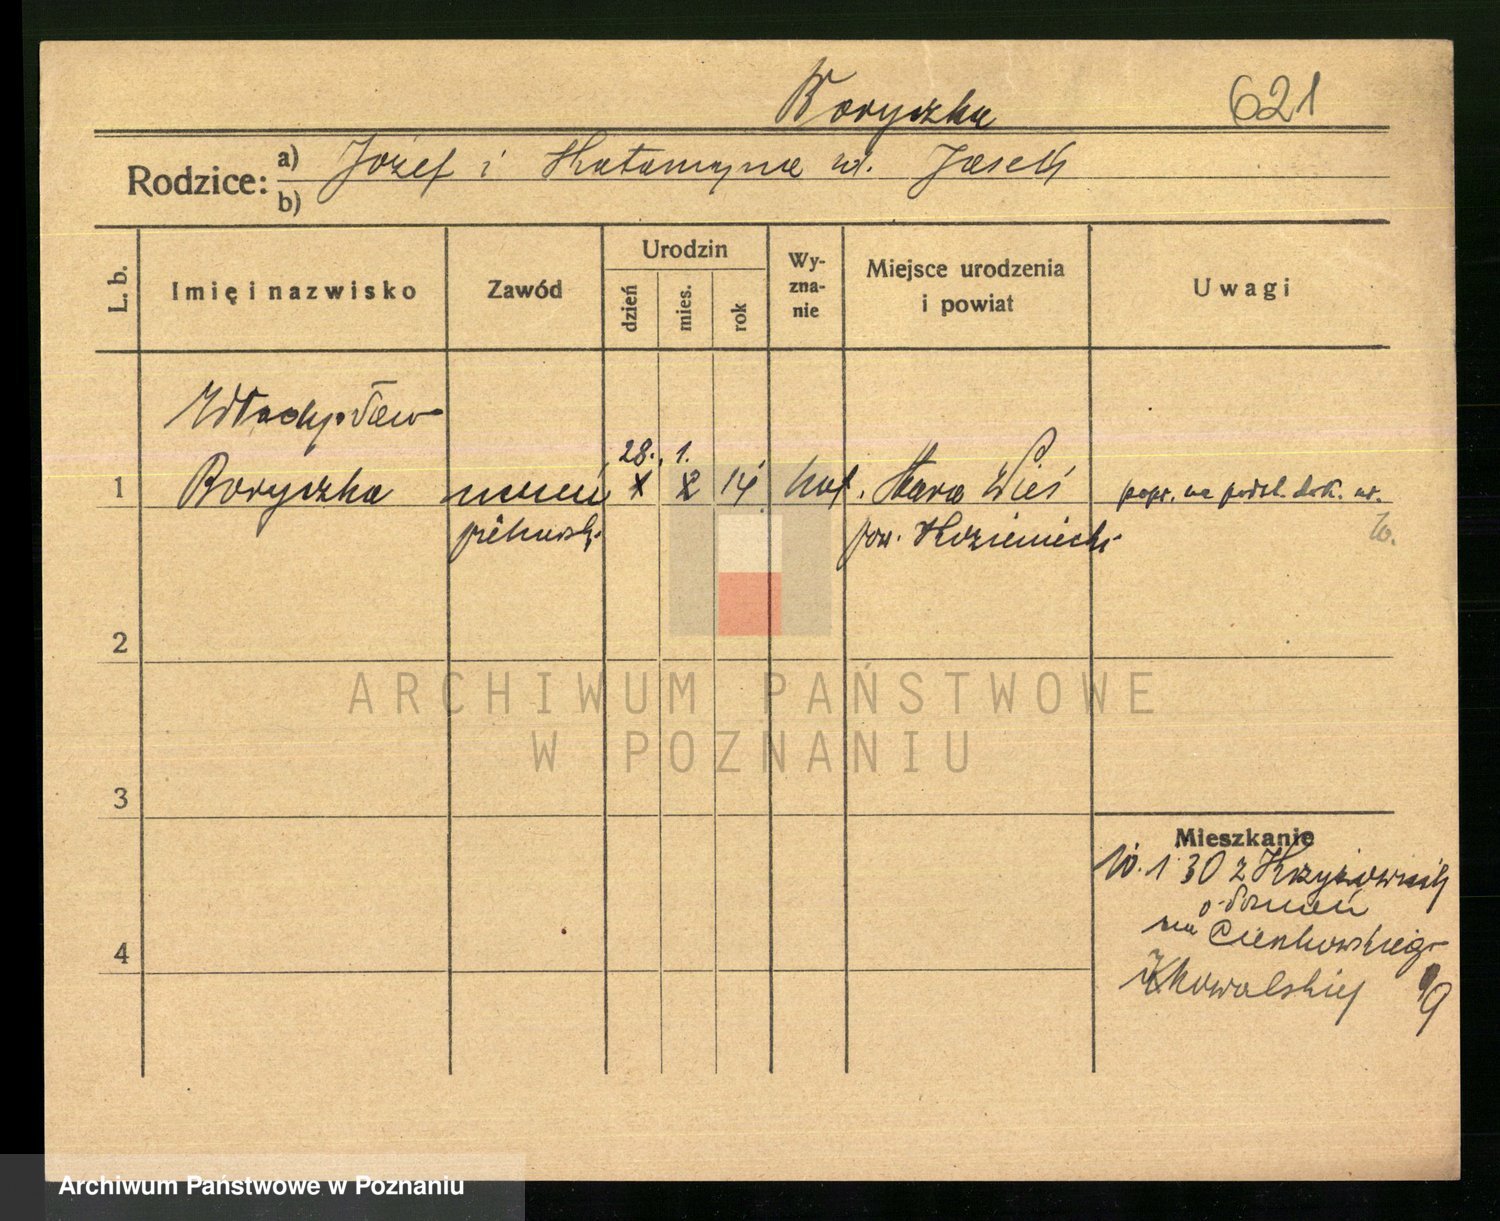 Boryczka 621
Rodzice: a) Józef i Katarzyna ur. Jasek
b)
L. b. Imię i nazwisko Zawód Urodzin dzień mies. rok Wyznanie Miejsce urodzenia i powiat Uwagi
Władysław
28. 1.
1 Boryczka uczeń X X 14 kat. Stara Wieś popr. na podst. dok. ur.
piekarski pow. Kozienicki
2
ARCHIWUM PAŃSTWOWE
W POZNANIU
3
Mieszkanie
1 30 z Krzyżownik
p. Poznań
4 na Cienkowskiego
Kowalskiej 9
Archiwum Państwowe w Poznaniu